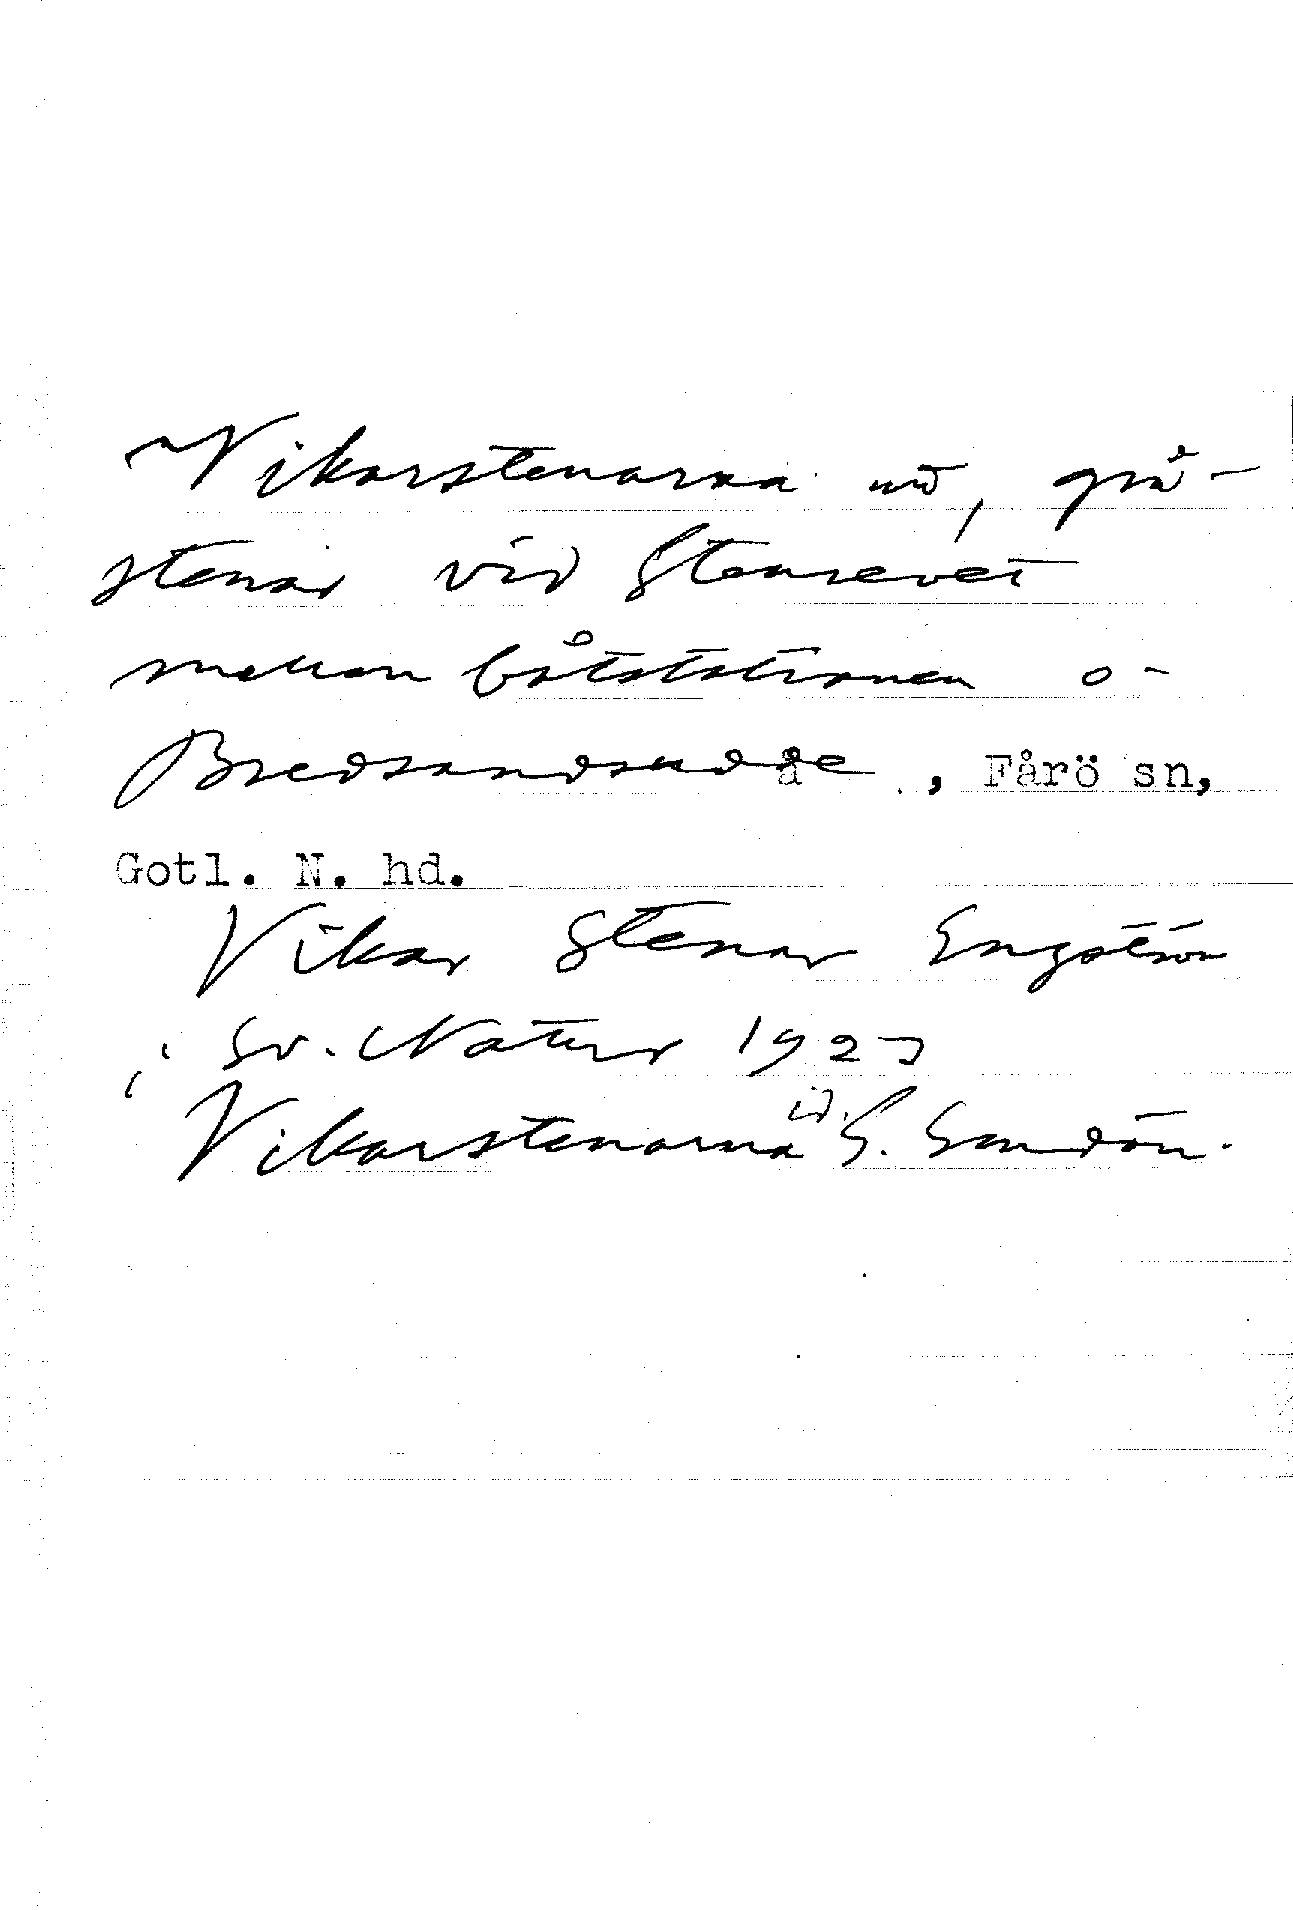 Vikarstenarna nð, grå-
stenar vid Stenrevet
mellan båtstationen o-
Bredsandsudde, Fårö sn,
Gotl. N. hd.
Vikar Stenar Engström
i Sv. Natur 1923
Vikarstenarna id. S.